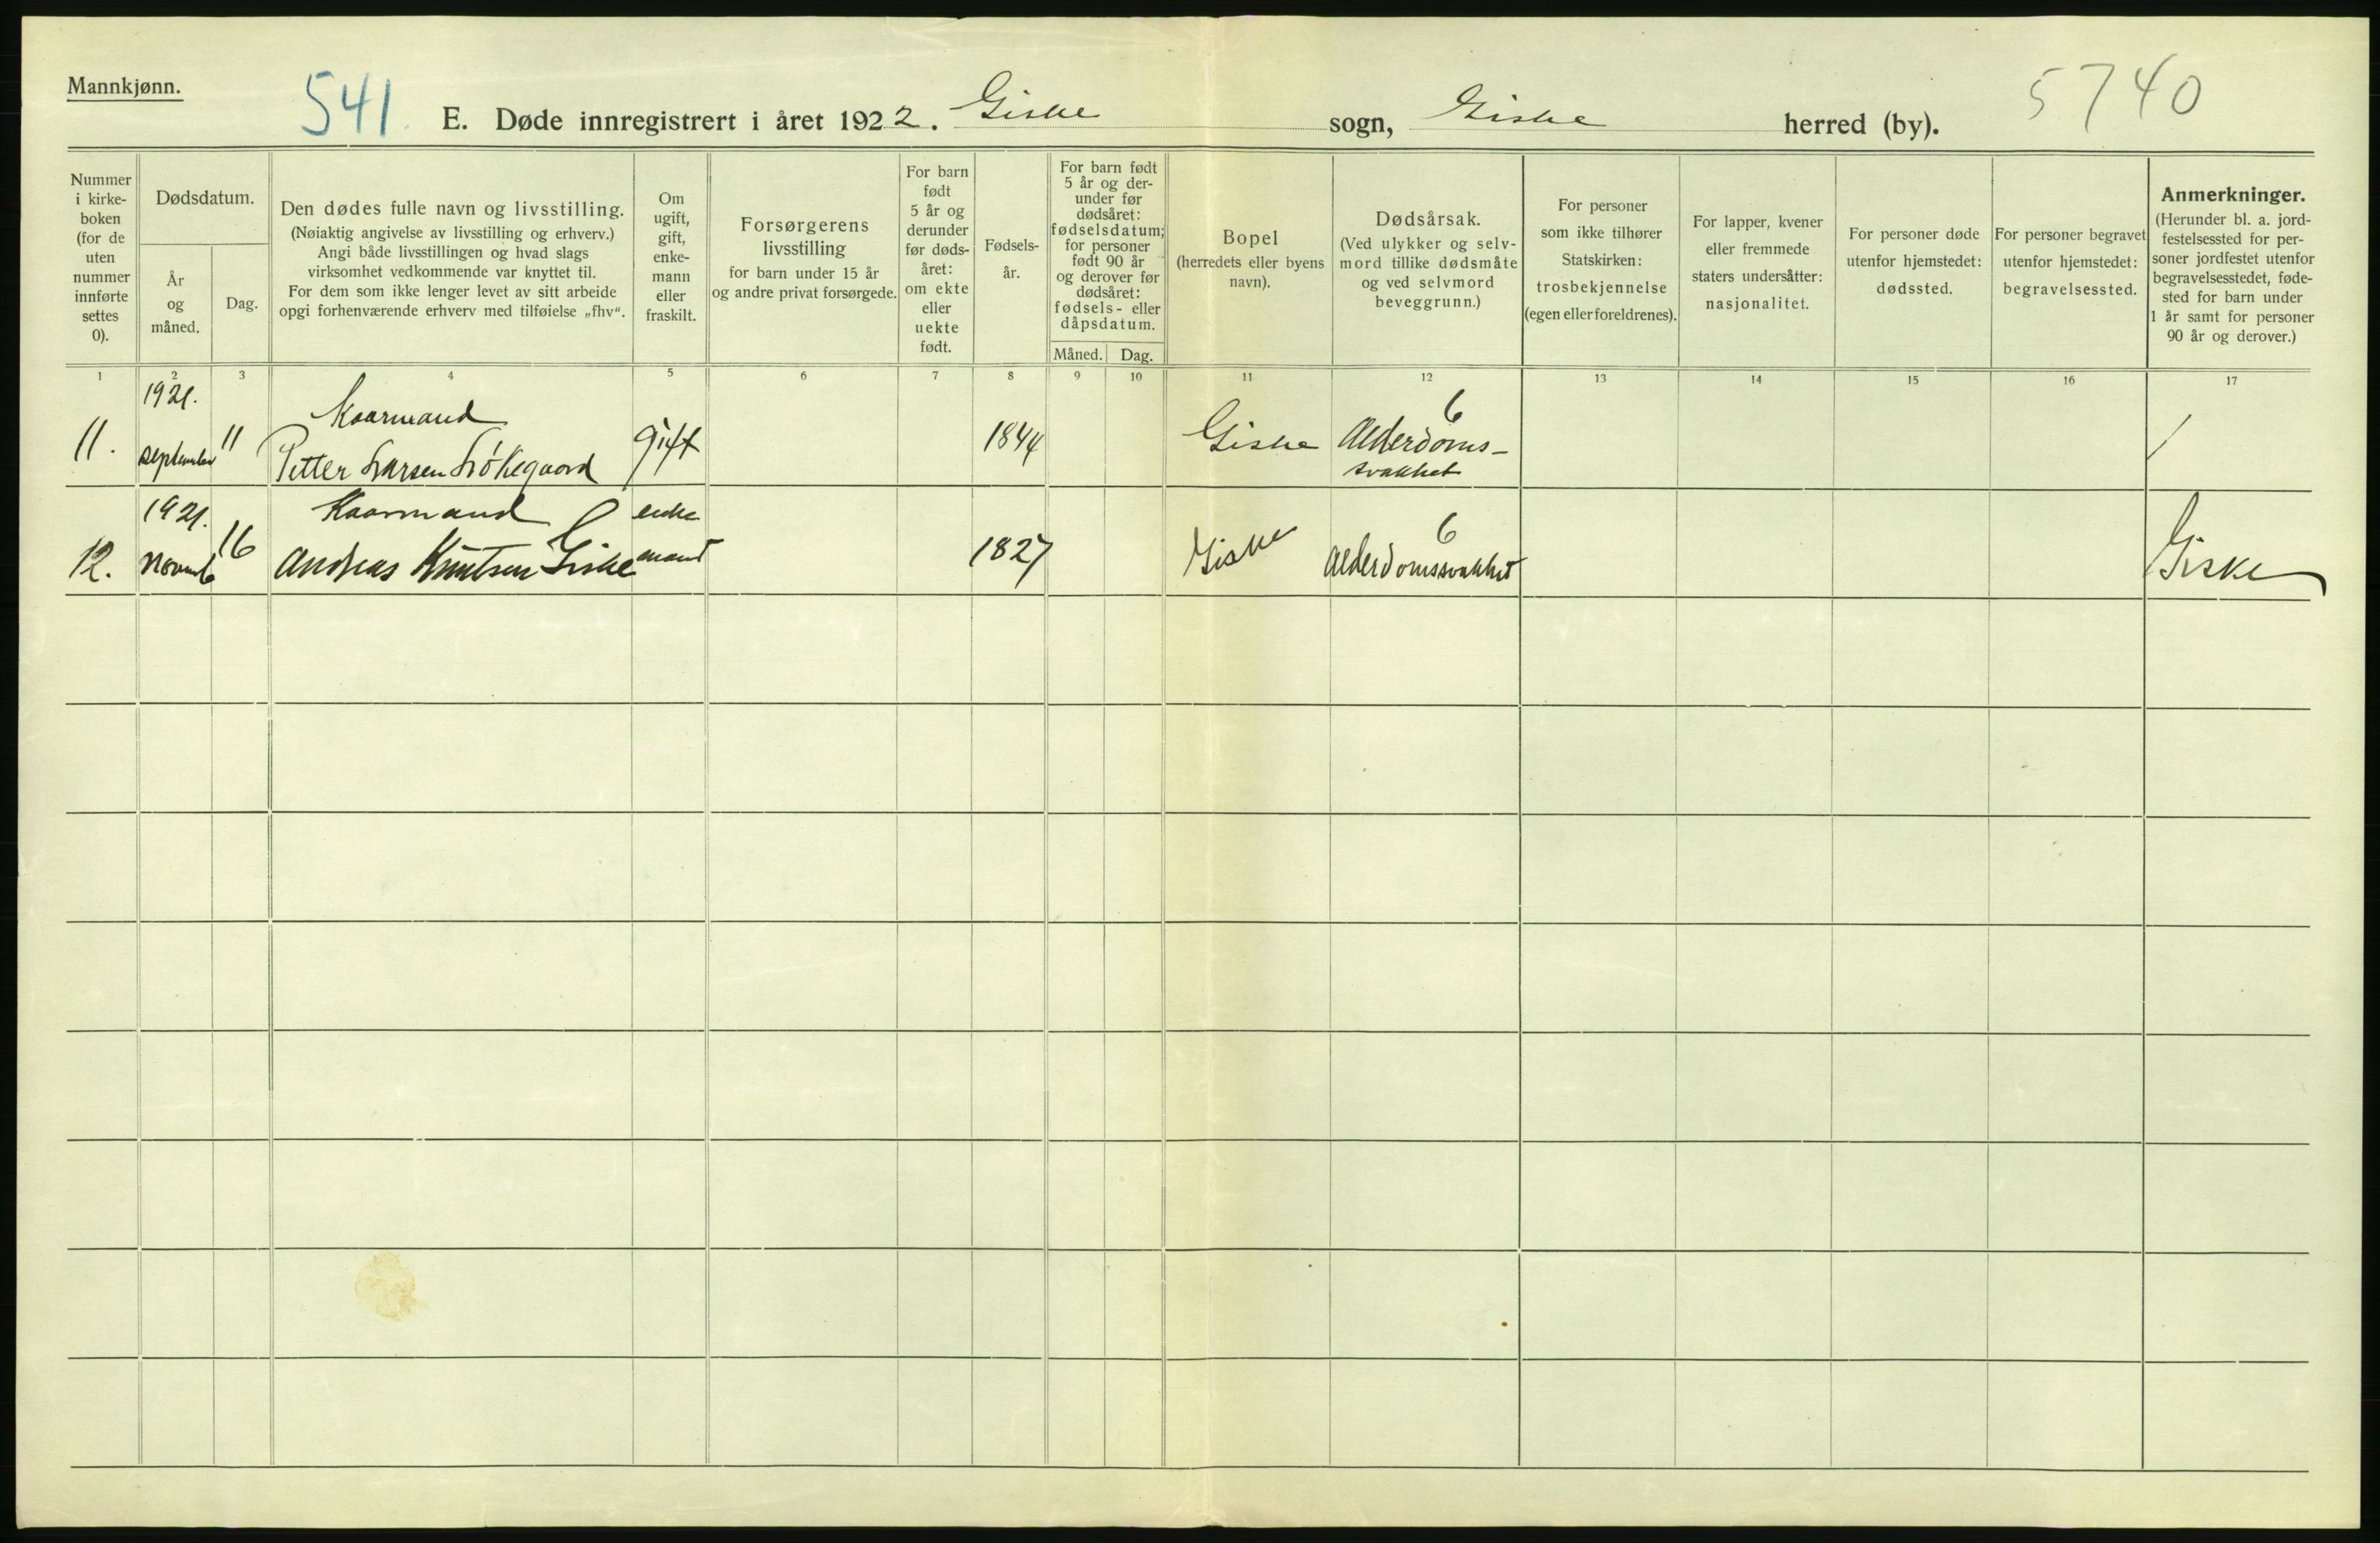 Mannkjønn.
541.
E. Døde innregistrert i året 1922. Giske sogn, Giske herred (by).
5740
Nummer i kirkeboken (for de uten nummer innførte settes 0).
Dødsdatum.
År og måned.
Dag.
Den dødes fulle navn og livsstilling.
(Nøiaktig angivelse av livsstilling og erhverv.)
Angi både livsstillingen og hvad slags
virksomhet vedkommende var knyttet til.
For dem som ikke lenger levet av sitt arbeide
opgi forhenværende erhverv med tilføielse „fhv“.
Om ugift, gift, enkemann eller fraskilt.
Forsørgerens
livsstilling
for barn under 15 år
og andre privat forsørgede.
For barn født 5 år og derunder før dødsåret: om ekte eller uekte født.
Fødselsår.
For barn født 5 år og derunder før dødsåret: fødselsdatum; for personer født 90 år og derover før dødsåret: fødsels- eller dåpsdatum.
Måned.
Dag.
Bopel
(herredets eller byens
navn).
Dødsårsak.
(Ved ulykker og selvmord tillike dødsmåte
og ved selvmord
beveggrunn.)
For personer
som ikke tilhører
Statskirken:
trosbekjennelse
(egen eller foreldrenes).
For lapper, kvener
eller fremmede
staters undersåtter:
nasjonalitet.
For personer døde
utenfor hjemstedet:
dødssted.
For personer begravet
utenfor hjemstedet:
begravelsessted.
Anmerkninger.
(Herunder bl. a. jordfestelsessted for personer jordfestet utenfor begravelsesstedet, fødested for barn under 1 år samt for personer 90 år og derover.)
1 2 3 4 5 6 7 8 9 10 11 12 13 14 15 16 17
1921.
Kaarmand
6
11. september 11 Petter Larsen Løkegaard gift 1844 Giske Alderdoms-
svakhet
1921.
Kaarmand
enke
6
12. Novemb 16 Andreas Knutsen Giske mand 1827 Giske Alderdomssvakhet Giske